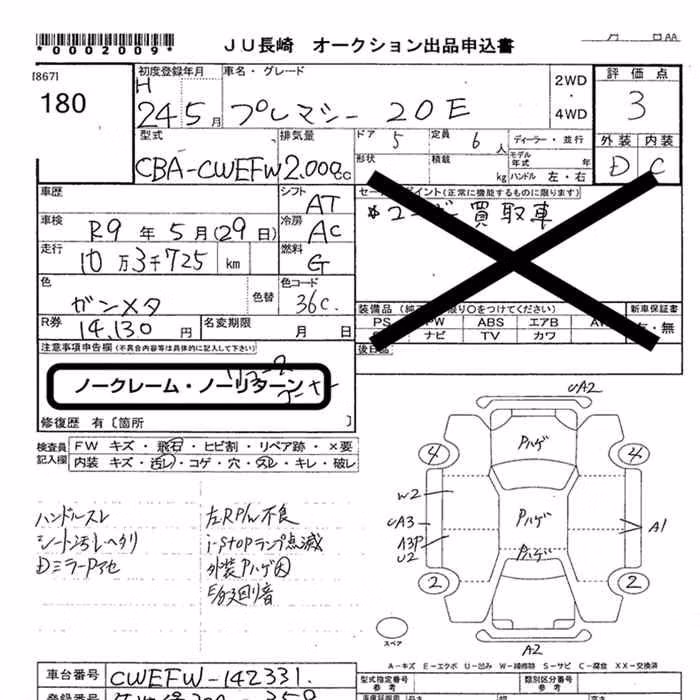 *0002009*
JU長崎 オークション出品申込書
AA
180
初度登録年月 車名・グレード
H 24 5月 プレマシー 20E
2WD
・
4WD
評価点
3
外装 内装
D C
型式 排気量
CBA-CWEFW 2,000cc
ドア 5 定員 6人 ディーラー・並行
形状 積載 kg モデル年式 年
ハンドル 左・右
車歴
シフト AT
車検 R9年5月(29日)
冷房 AC
走行 10万3千725 km
燃料 G
色 ガンメタ 色替
色コード 36C.
R券 14,130円 名変期限 月 日
セールスポイント(正常に機能するものに限ります)
買取車
PS ABS エアB
ナビ TV カワ
新車保証書
有・無
後日品
注意事項申告欄(不具合内容等は具体的に記入して下さい)
ノークレーム・ノーリターン
修復歴 有〔箇所 〕
検査員記入欄
FW キズ・飛石・ヒビ割・リペア跡・×要
内装 キズ・汚レ・コゲ・穴・スレ・キレ・破レ
ハンドルスレ
シート汚レヘタリ
DミラーPアセ
左RP/W不良
i-STOPランプ点滅
外装Pハゲ因
UA2
Pハゲ
4 4
W2
UA3
Pハゲ
A1
A3P
U2
Pハゲ
2 2
スペア
A2
A-キズ E-エクボ U-凹み W-補修跡 S-サビ C-腐食 XX-交換済
車台番号 CWEFW-142331.
型式指定番号 参考
類別区分番号 参考
登録番号